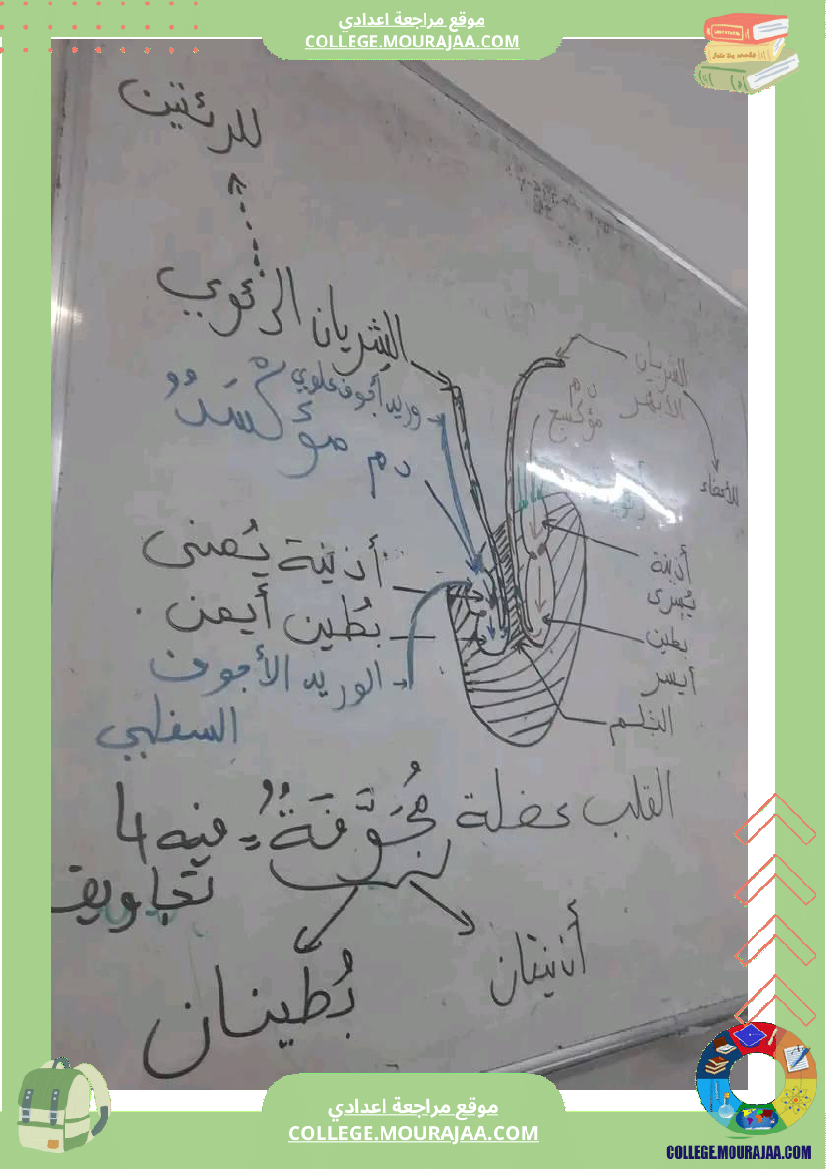 موقع مراجعة اعدادي
COLLEGE.MOURAJAA.COM
للرئتين
الشريان الرئوي
وريد أجوف علوي
دم مؤكسد
الشريان
الأبهر
دم
مؤكسج
للأعضاء
أذينة يمنى
بُطين أيمن .
الوريد الأجوف
السفلي
أذينة
يسرى
بطين
أيسر
القلب عضلة مُجَوَّفَةٌ = فيه 4
تجاويف
أذينتان
بُطينان
موقع مراجعة اعدادي
COLLEGE.MOURAJAA.COM
COLLEGE.MOURAJAA.COM